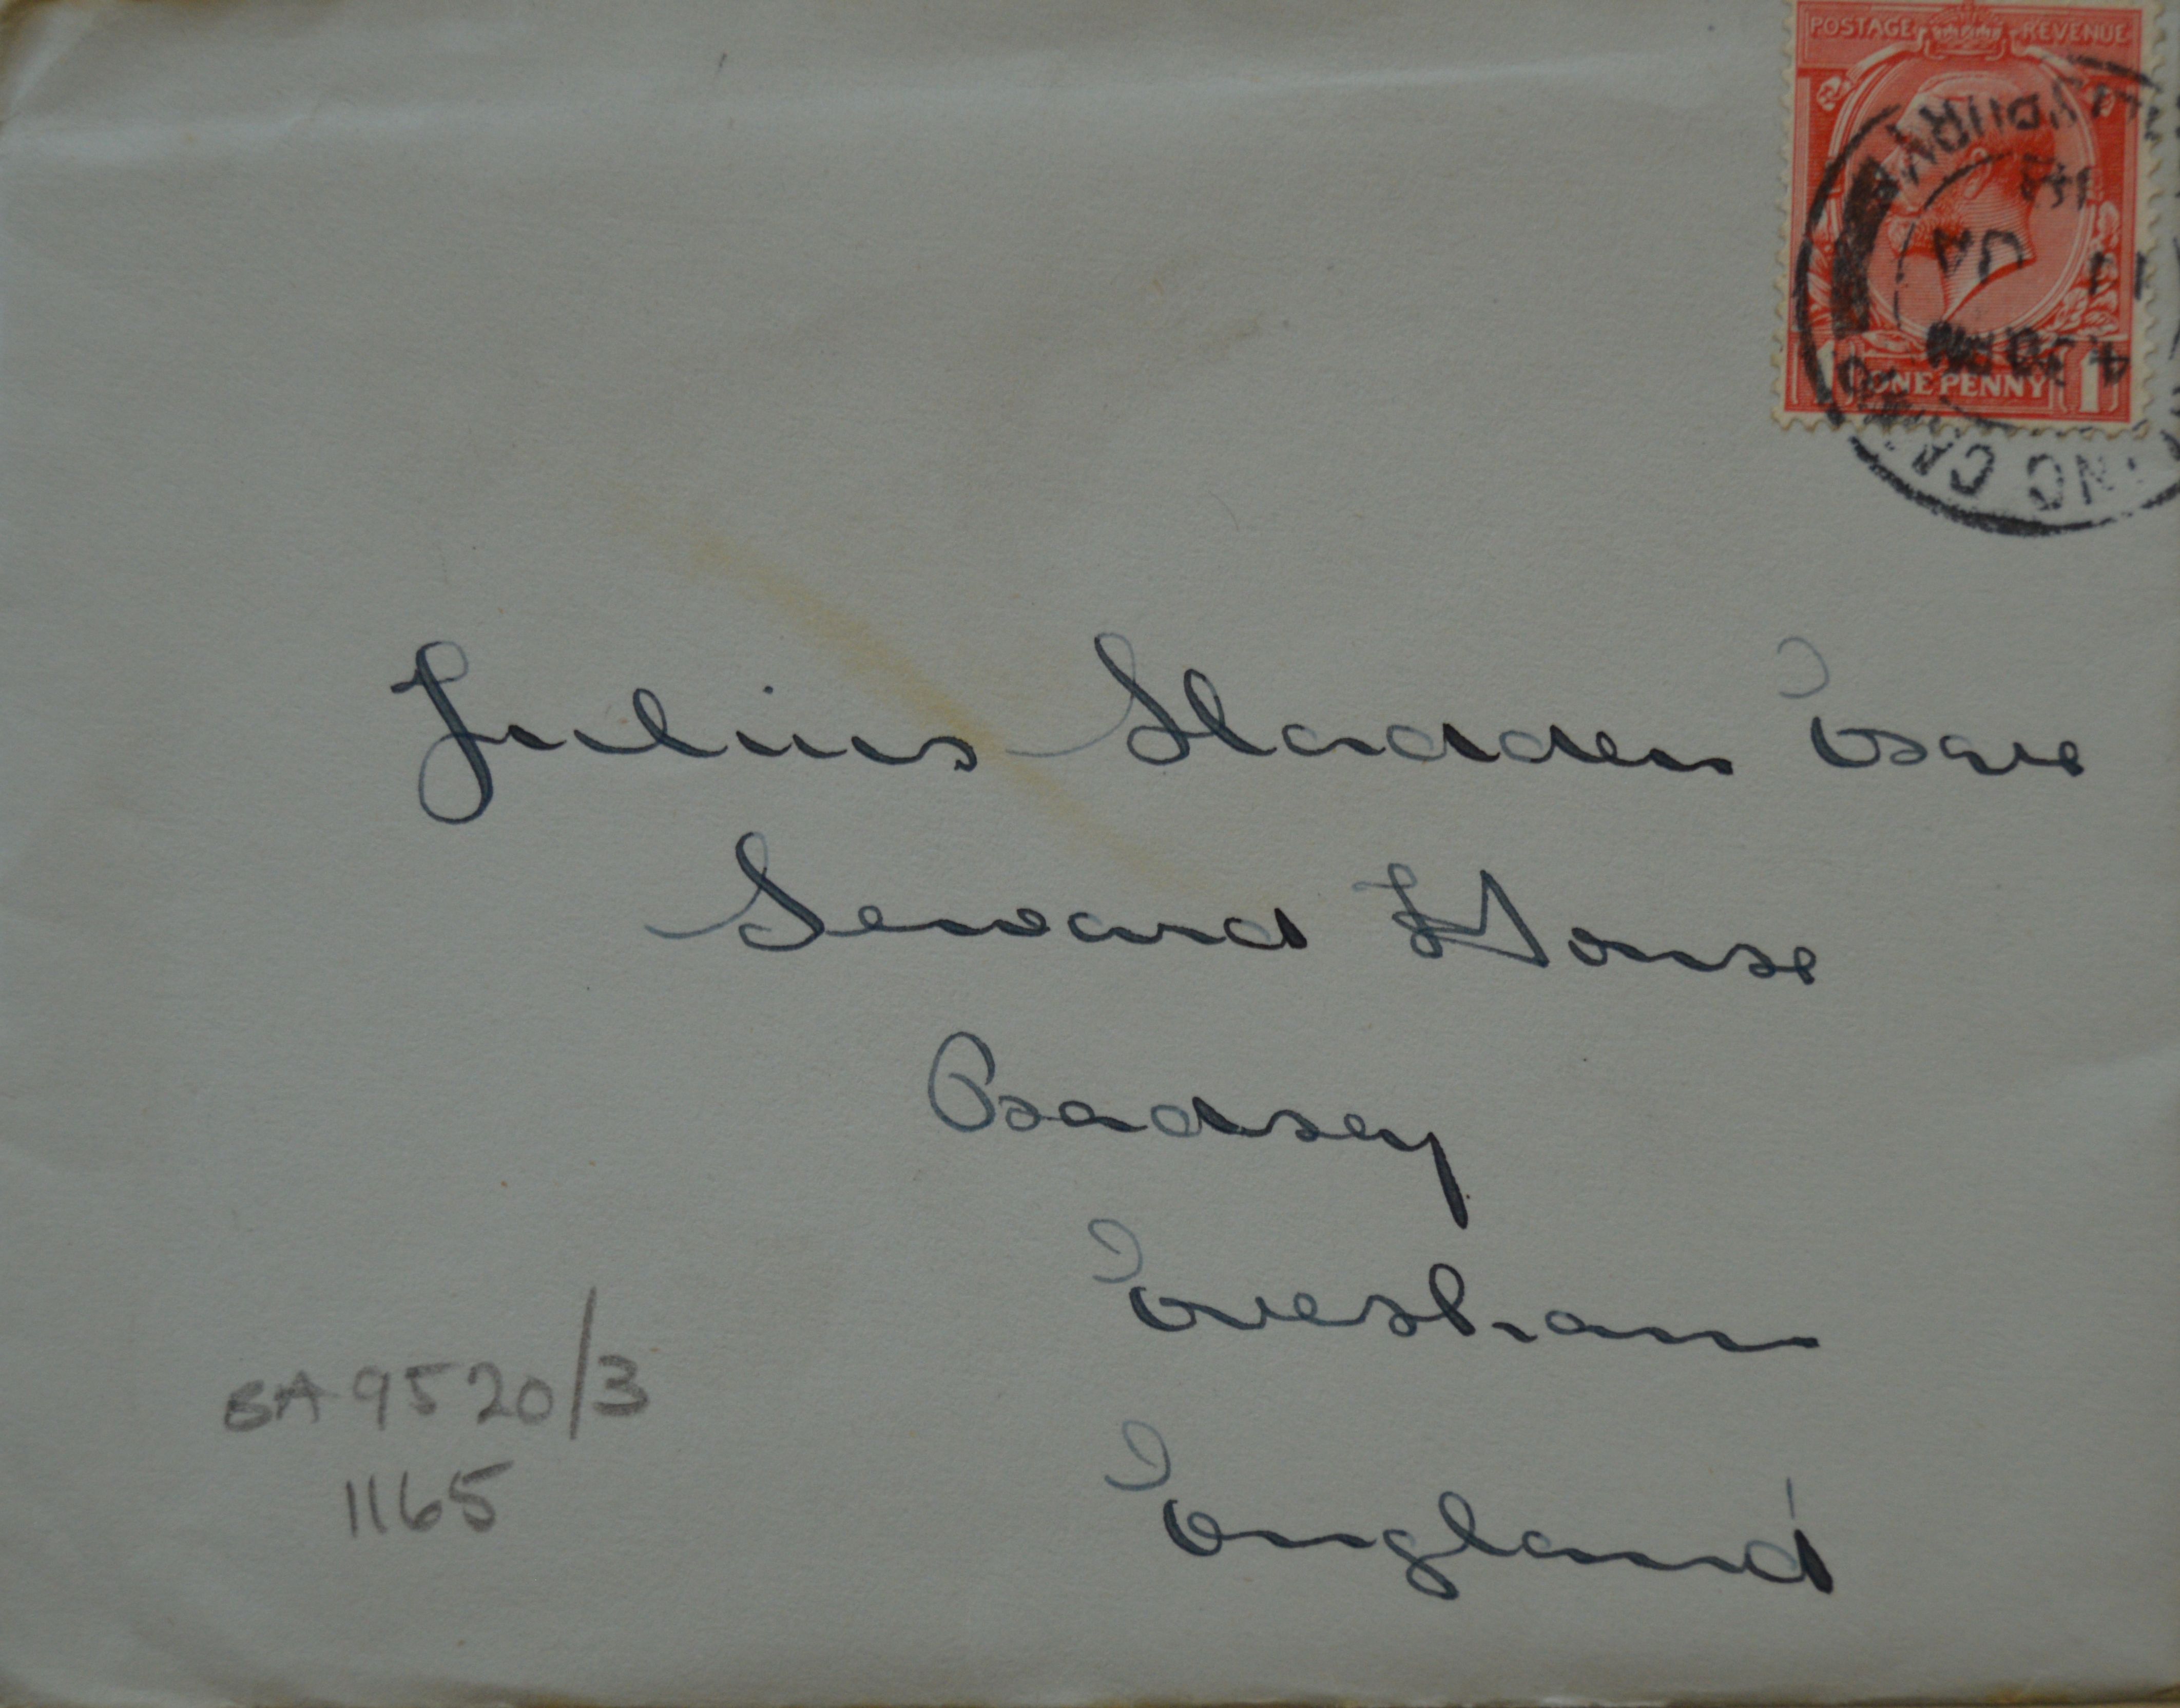 POSTAGE REVENUE
ONE PENNY 1
Julius Sladden Esqre
Seward House
Badsey
Evesham
England
BA 9520/3
1165